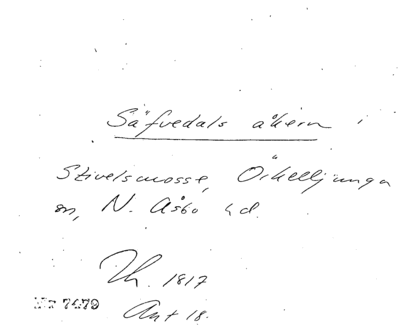 Säfvedals åkern i
Stivelsmosse, Örkelljunga
sn, N. Åsbo hd.
Th. 1817
Nr 7479
Ant 18.